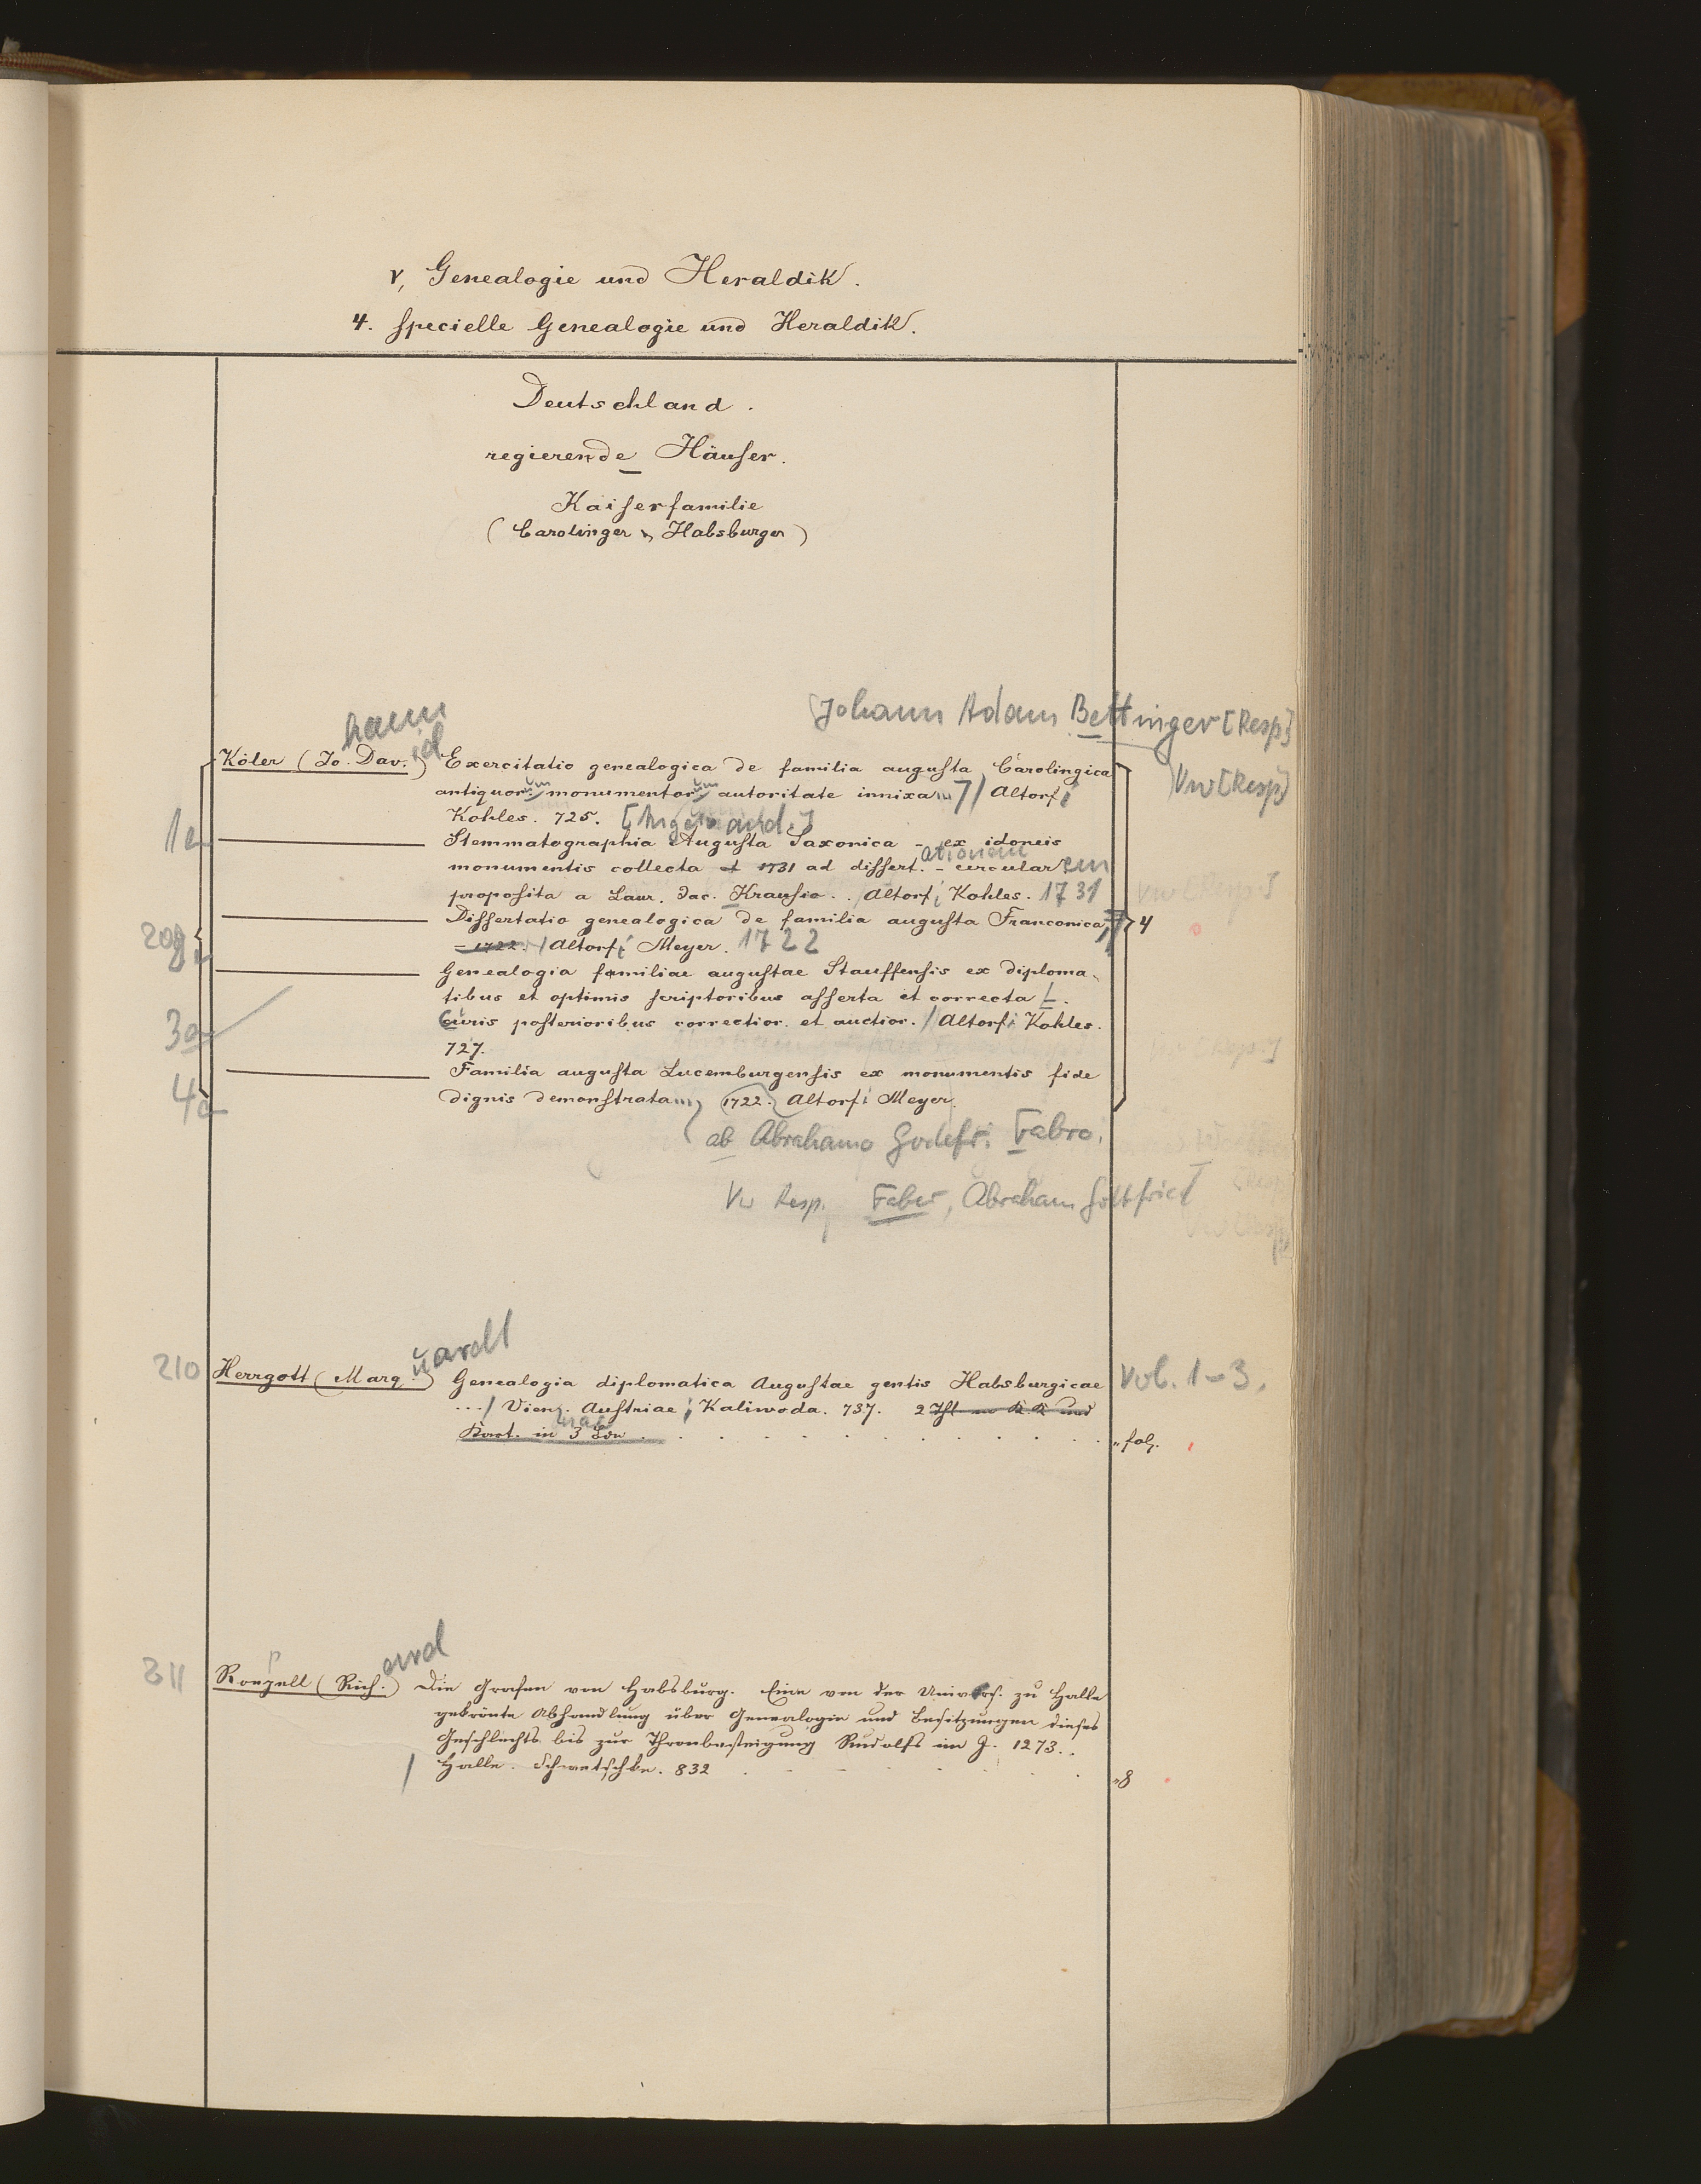 V, Genealogie und Heraldik.
4. specielle Genealogie und Heraldik.
Deutschland.
regierende Häuser.
Kaiserfamilie
(Carolinger u. Habsburger)
Johann Adam Bettinger [Resp]
hann
id
Köler (Jo. Dav.) Exercitatio genealogica de familia augusta Carolingica
Vw [Resp]
antiquorum monumentorum autoritate innixa / Altorfi
Kohles. 725. [Angeb. and.]
1a
Stemmatographia Augusta Saxonica - ex idoneis
ationem
monumentis collecta et 1731 ad dissert. - circularem
proposita a Laur. Jac. Krausio. . / Altorfi Kohles. 1731
Vw [Resp.]
Dissertatio genealogica de familia augusta Franconica, 4
209
- 1722. / Altorfi Meyer. 1722
Genealogia familiae augustae Stauffensis ex diploma-
tibus et optimis scriptoribus asserta et correcta.
3a
Curis posterioribus correctior. et auctior. / Altorfi Kohles.
727.
[Resp.]
Familia augusta Lucemburgensis ex monumentis fide
4a
dignis demonstrata 1722. Altorfi Meyer.
ab Abrahamo Godefr. Fabro.
Vw Resp. Faber, Abraham Gottfried
uardt
210 Herrgott (Marq.) Genealogia diplomatica Augustae gentis Habsburgicae Vol. 1-3.
... / Vienn. Austriae; Kaliwoda. 737. 2 Thl. m K.K und
Kart. in 3 Bdn . . . . . . . . . . . " fol.
ard
211 Roepell (Rich.) Die Grafen von Habsburg. Eine von der Univers. zu Halle
gekrönte Abhandlung über Genealogie und Besitzungen dieses
Geschlechts bis zur Thronbesteigung Rudolfs im J. 1273..
/ Halle. Schwetschke. 832 . . . . . . . . "8